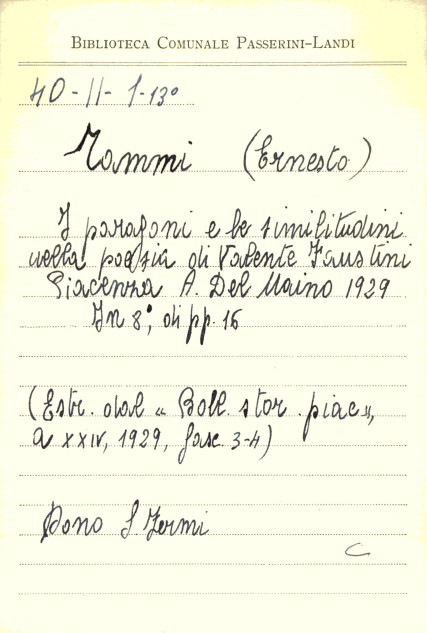 BIBLIOTECA COMUNALE PASSERINI-LANDI
40-II-f-13°
Tammi (Ernesto)
I paragoni e le similitudini
nella poesia di Valente Faustini
Piacenza A. Del Maino 1929
In 8°, di pp. 16
(Estr. dal « Boll. stor. piac»,
a XXIV, 1929, fasc. 3-4)
Dono S. Fermi
C